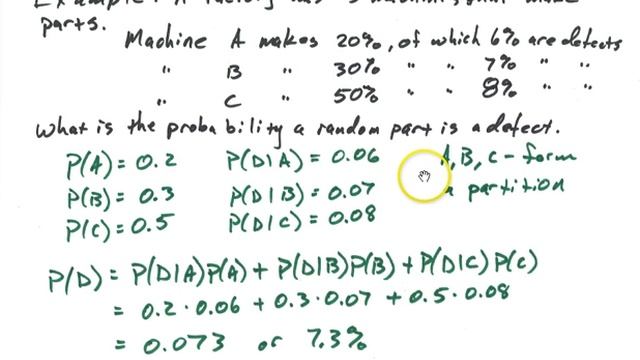 Example: A factory has 3 machines that make
parts.
Machine A makes 20%, of which 6% are defects
" B " 30% " " 7% " "
" C " 50% " " 8% " "
What is the probability a random part is a defect.
P(A) = 0.2 P(D|A) = 0.06 A, B, C - form
P(B) = 0.3 P(D|B) = 0.07 a partition
P(C) = 0.5 P(D|C) = 0.08
P(D) = P(D|A)P(A) + P(D|B)P(B) + P(D|C)P(C)
= 0.2 · 0.06 + 0.3 · 0.07 + 0.5 · 0.08
= 0.073 or 7.3%